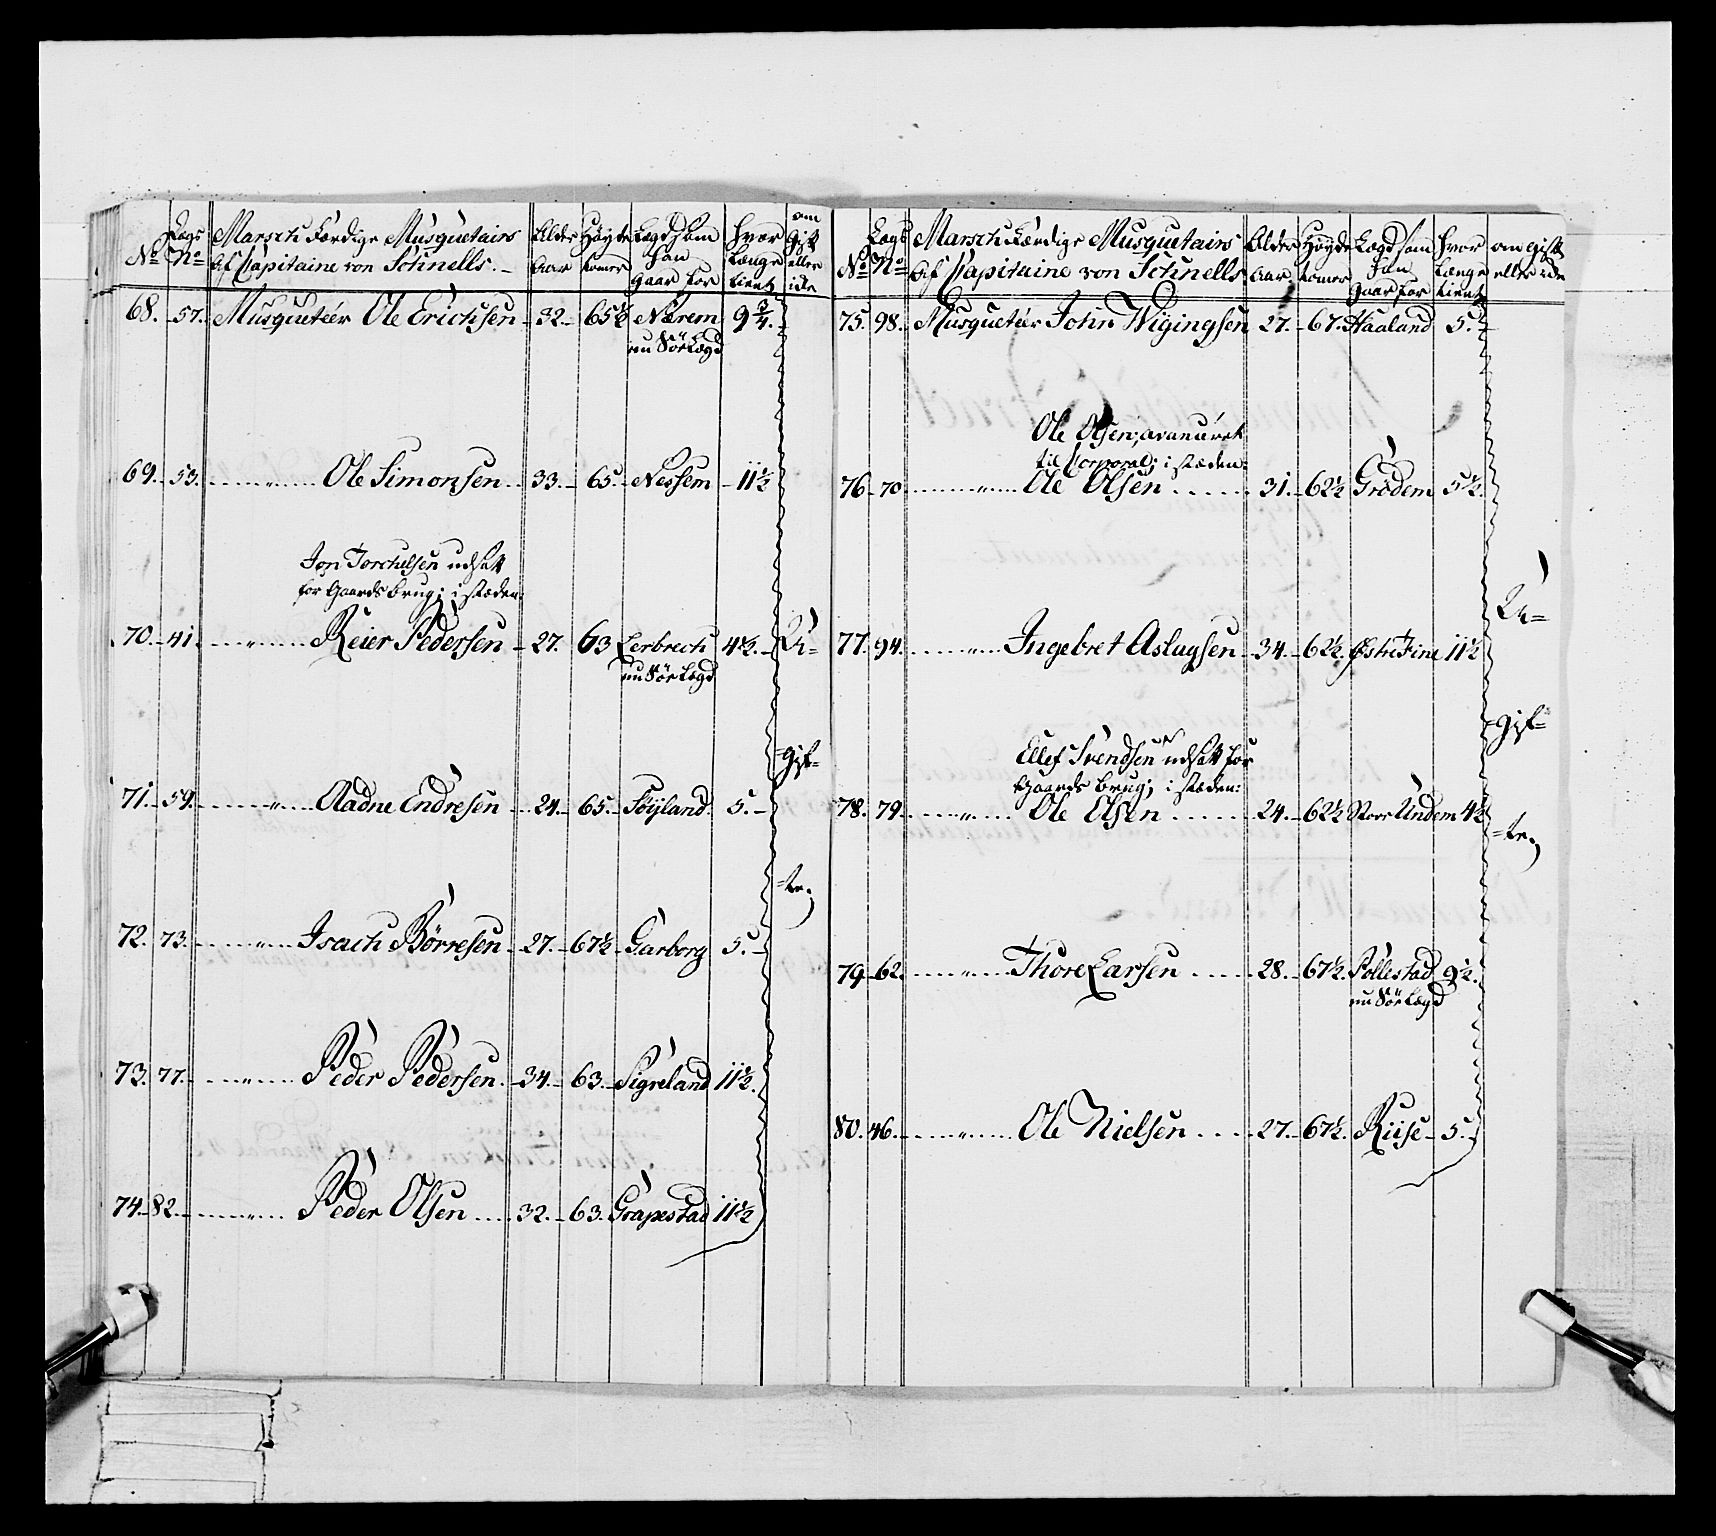 No Lægs No Marsch Færdige Musquetairs Af Capitaine von Schnells. Alder Aar Høyde tomer Lægd som han gaar for hvor Længe tient om Gift eller icke
68. 57. Musqueteer Ole Erichsen 32. 65½ Nærem 9¾.
nu Sör Lægd
69. 53. " Ole Simonsen 33. 65. Nessem 11½
Jon Torchelsen udsatt
for Gaards brug; i stæden:
70. 41. " Reier Pedersen 27. 63 Lerbrech 4½. U=
nu Sör Lægd
gif=
71. 59. " Aadne Endresen 24. 65. Töyland. 5.
=te;
72. 73. " Isach Börresen 27. 67½ Garborg 5.
73. 77. " Peder Pedersen. 34. 63. Sigreland 11½.
74. 82. " Peder Olsen 32. 63. Grapestad 11½
No Lægs No Marsch Færdige Musquetairs Af Capitaine von Schnells Alder Aar Høyde tomer Lægd som han gaar for hvor Længe tient om gift eller icke
75. 98. Musqueteer John Wigingsen 27. 67. Haaland 5.
Ole Olsen, avanceret
til Corporal; i stæden:
76. 70 " Ole Olsen 31. 62½ Grödem 5½.
U=
77. 94. " Ingebret Aslagsen 34. 62½. Østre Fine 11½
gif=
Ellef Svendsen udsatt for
Gaards brug; i stæden:
78. 79. " Ole Olsen 24. 62½ Store Undem 4½
=te;
79 62. " Thore Larsen 28. 67½. Pollestad 9½.
nu Sör Lægd
80. 46. " Ole Nielsen 27. 67½. Riise 5.